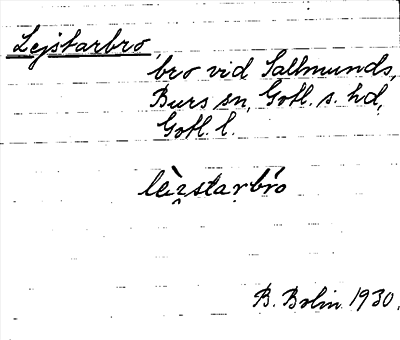 Lejstarbro,
bro vid Sallmunds,
Burs sn, Gotl. s. hd,
Gotl. l.
lèi̯starbro
B. Bolin 1930.